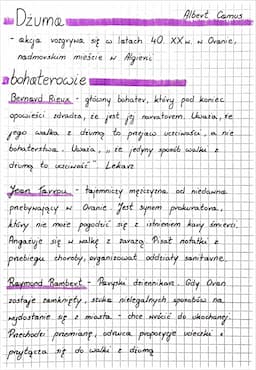 Dżuma Albert Camus
- akcja rozgrywa się w latach 40. XX w. w Oranie,
nadmorskim mieście w Algierii
bohaterowie
Bernard Rieux - główny bohater, który pod koniec
opowieści zdradza, że jest jej narratorem. Uważa, że
jego walka z dżumą to przejaw uczciwości, a nie
bohaterstwa. Uważa, „że jedyny sposób walki z
dżumą to uczciwość". Lekarz
Jean Tarrou - tajemniczy mężczyzna od niedawna
przebywający w Oranie. Jest synem prokuratora,
który nie może pogodzić się z istnieniem kary śmierci.
Angażuje się w walkę z zarazą. Pisał notatki z
przebiegu choroby, organizował oddziały sanitarne.
Raymond Rambert - Paryski dziennikarz. Gdy Oran
zostaje zamknięty, szuka nielegalnych sposobów na
wydostanie się z miasta - chce wrócić do ukochanej.
Przechodzi przemianę, odrzuca propozycję ucieczki i
przyłącza się do walki z dżumą